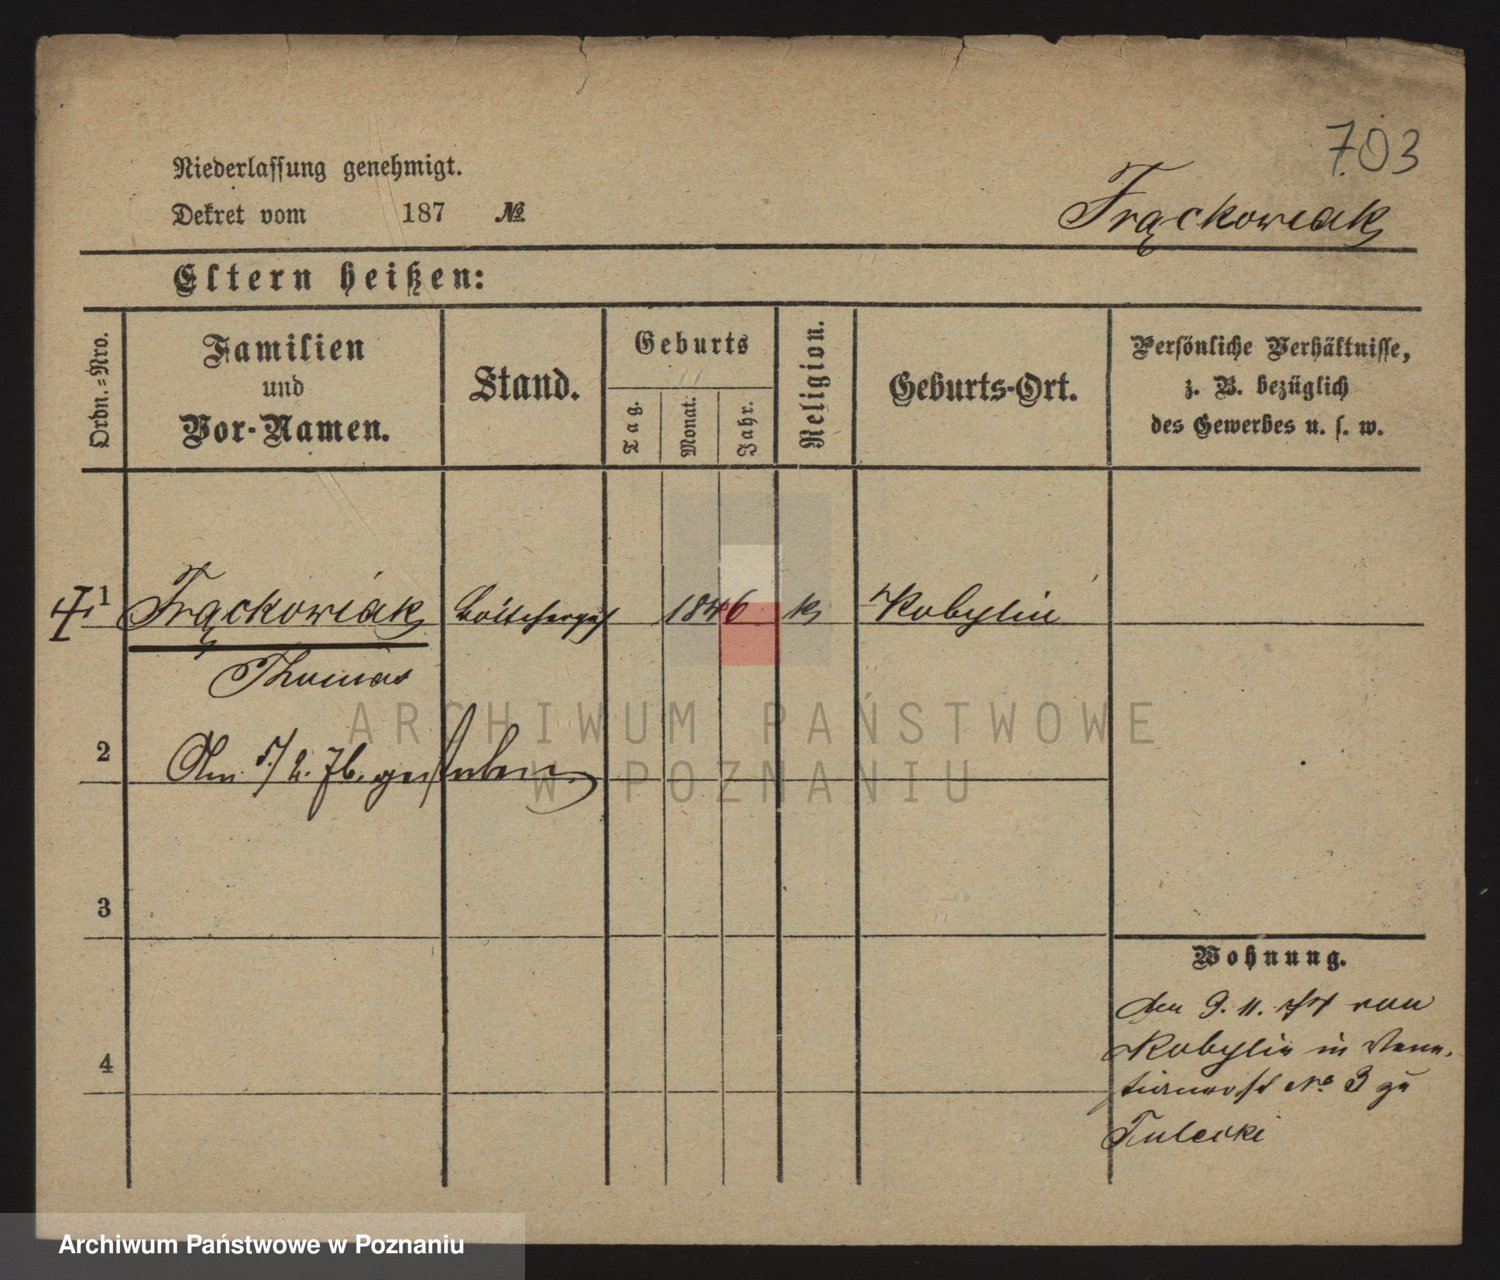 703
Niederlassung genehmigt.
Dekret vom 187 №
Frąckowiak
Eltern heißen:
Ordn.-Nro.
Familien
und
Vor-Namen.
Stand.
Geburts
Tag.
Monat.
Jahr.
Religion.
Geburts-Ort.
Persönliche Verhältnisse,
z. B. bezüglich
des Gewerbes u. s. w.
1 Frąckowiak Böttcherges 1846 k Kobylin
Thomas
ARCHIWUM PAŃSTWOWE
W POZNANIU
2 Am 5/2. 76. gestorben
3
Wohnung.
den 9. 11. von
Kobylin in
№ 3 zu
4
Archiwum Państwowe w Poznaniu